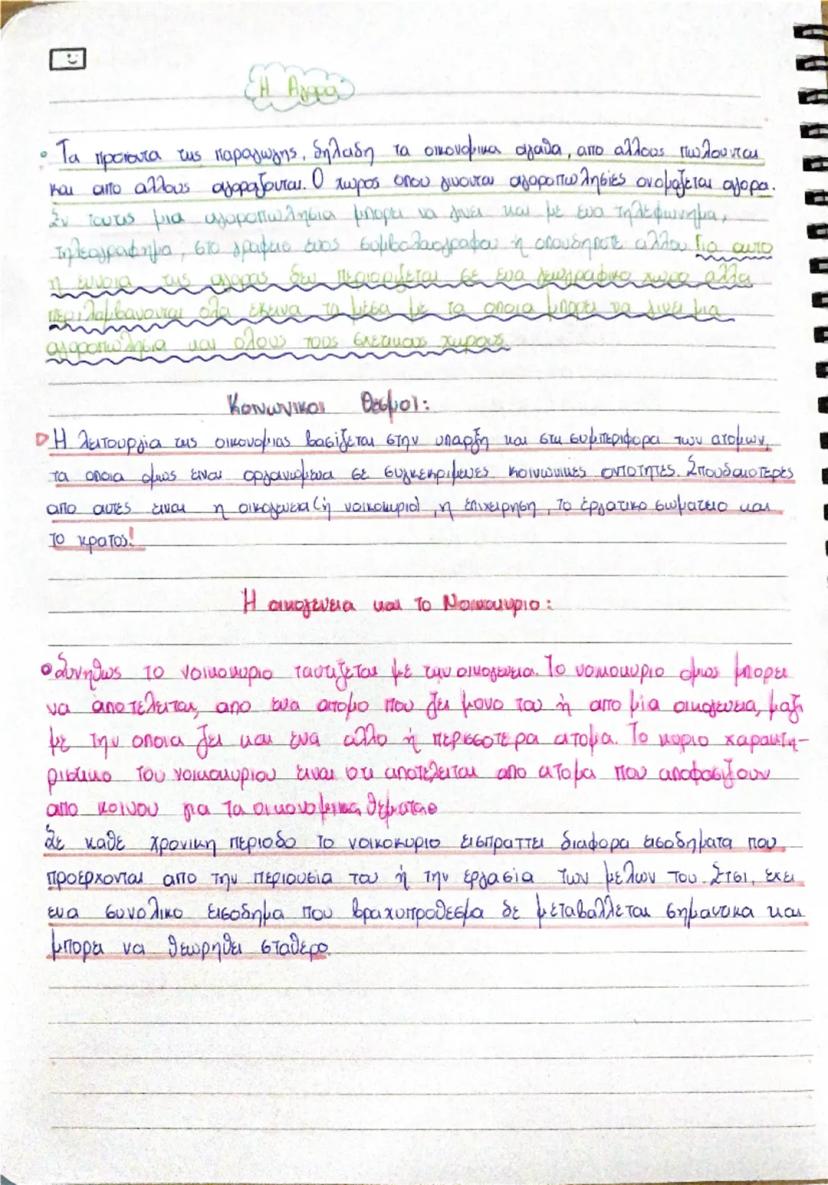 Η Αγορα
Τα προϊοντα της παραγωγης, δηλαδη τα οικονομικα αγαθα, απο αλλους πωλουνται
και απο αλλους αγοραζονται. Ο χωρος οπου γινονται αγοραπωλησιες ονομαζεται αγορα.
Εν τουτις μια αγοραπωλησια μπορει να γινει και με ενα τηλεφωνημα,
τηλεογραφημα, στο γραφειο ενος συμβολαιογραφου ή οπουδηποτε αλλου. Για αυτο
η εννοια της αγορας δεν περιοριζεται σε ενα γεωγραφικο χωρο αλλα
περιλαμβανονται ολα εκεινα τα μεσα με τα οποια μπορει να γινει μια
αγοραπωλησια και ολους τους σχετικους χωρους.
Κοινωνικοι Θεσμοι:
Η λειτουργια της οικονομιας βασιζεται στην υπαρξη και στη συμπεριφορα των ατομων,
τα οποια ομως ειναι οργανωμενα σε συγκεκριμενες κοινωνικες οντοτητες. Σπουδαιοτερες
απο αυτες ειναι η οικογενεια (ή νοικοκυριο), η επιχειρηση, το εργατικο σωματειο και
το κρατος!
Η οικογενεια και το Νοικοκυριο:
Συνηθως το νοικοκυριο ταυτιζεται με την οικογενεια. Το νοικοκυριο ομως μπορει
να αποτελειται, απο ενα ατομο που ζει μονο του ή απο μία οικογενεια, μαζι
με την οποια ζει και ενα αλλο ή περισσοτερα ατομα. Το κυριο χαρακτη-
ριστικο του νοικοκυριου ειναι οτι αποτελειται απο ατομα που αποφασιζουν
απο κοινου για τα οικονομικα θεματα.
Σε καθε χρονικη περιοδο το νοικοκυριο εισπραττει διαφορα εισοδηματα που
προερχονται απο την περιουσια του ή την εργασία των μελων του. Ετσι, εχει
ενα συνολικο εισοδημα που βραχυπροθεσμα δε μεταβαλλεται σημαντικα και
μπορει να θεωρηθει σταθερο.